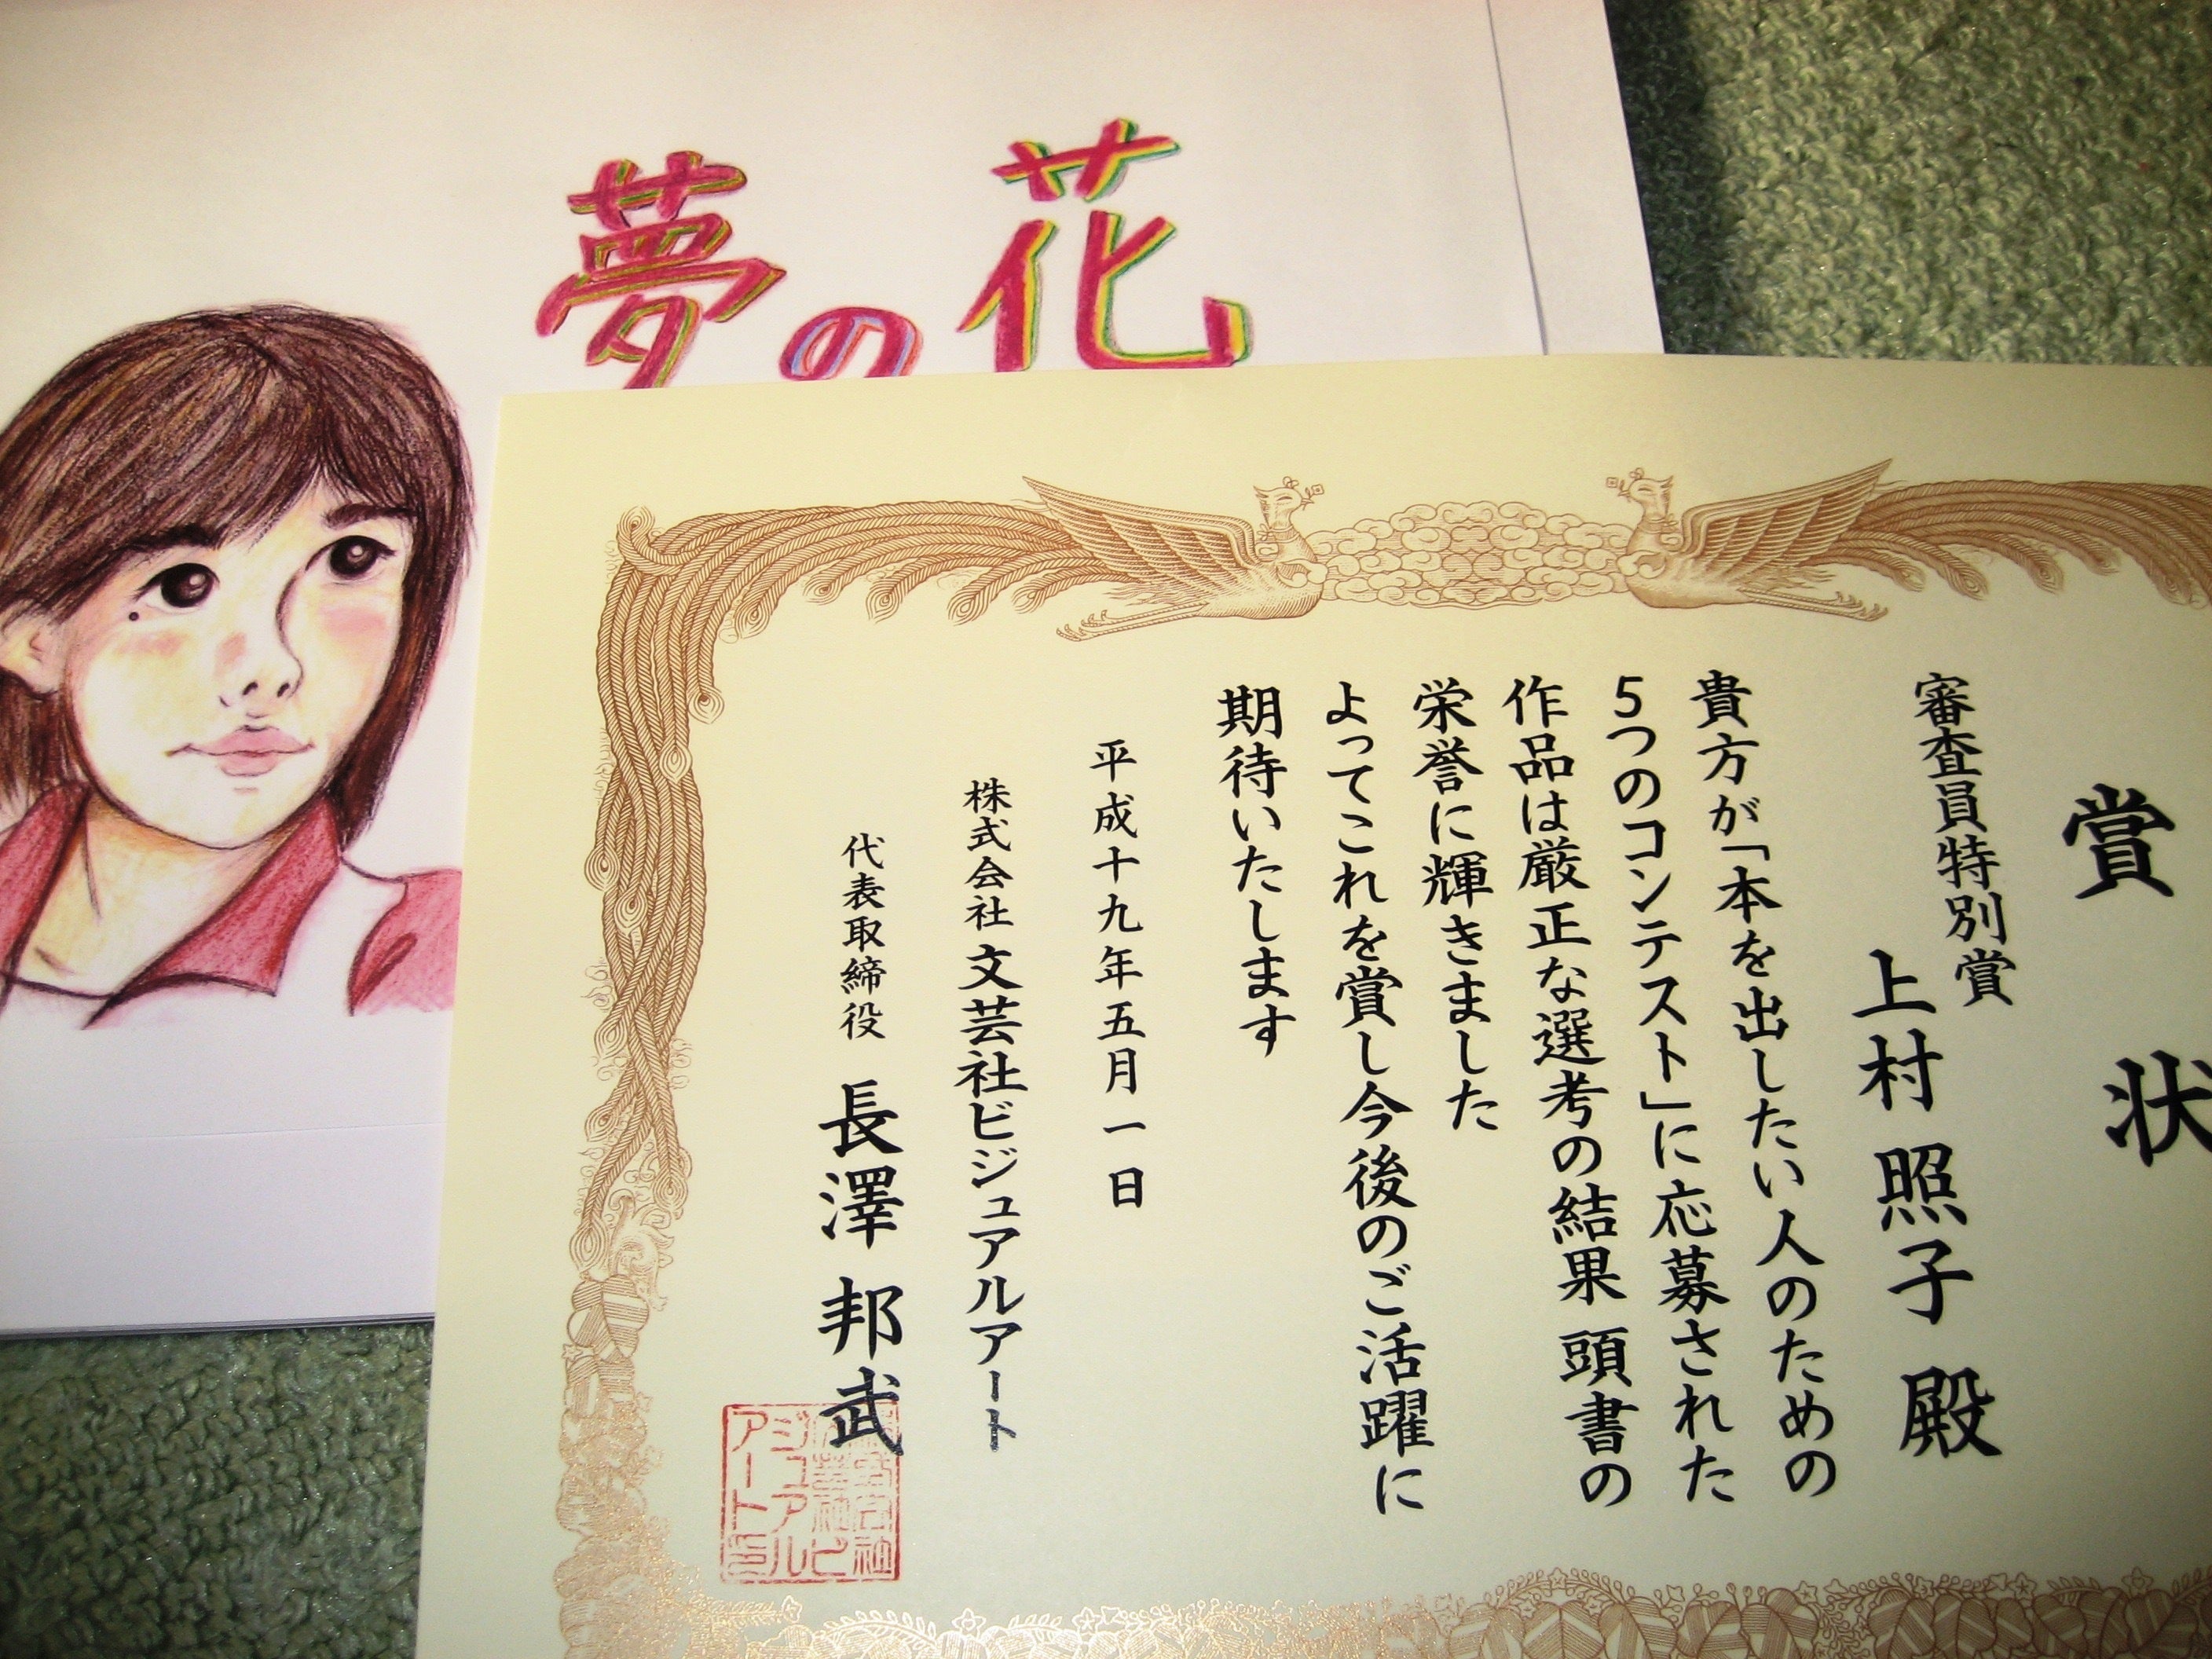 夢の花
賞状
審査員特別賞
上村照子殿
貴方が「本を出したい人のための
5つのコンテスト」に応募された
作品は厳正な選考の結果 頭書の
栄誉に輝きました
よってこれを賞し今後のご活躍に
期待いたします
平成十九年五月一日
株式会社 文芸社ビジュアルアート
代表取締役 長澤邦武